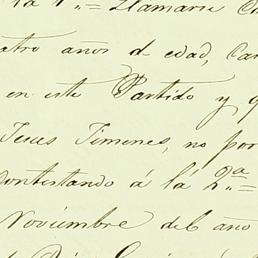 la 1ª = Llamarse
atro años de edad, Ca
en este Partido y q
Jesus Timenes, no por
contestando á la 2ª =
Noviembre del año